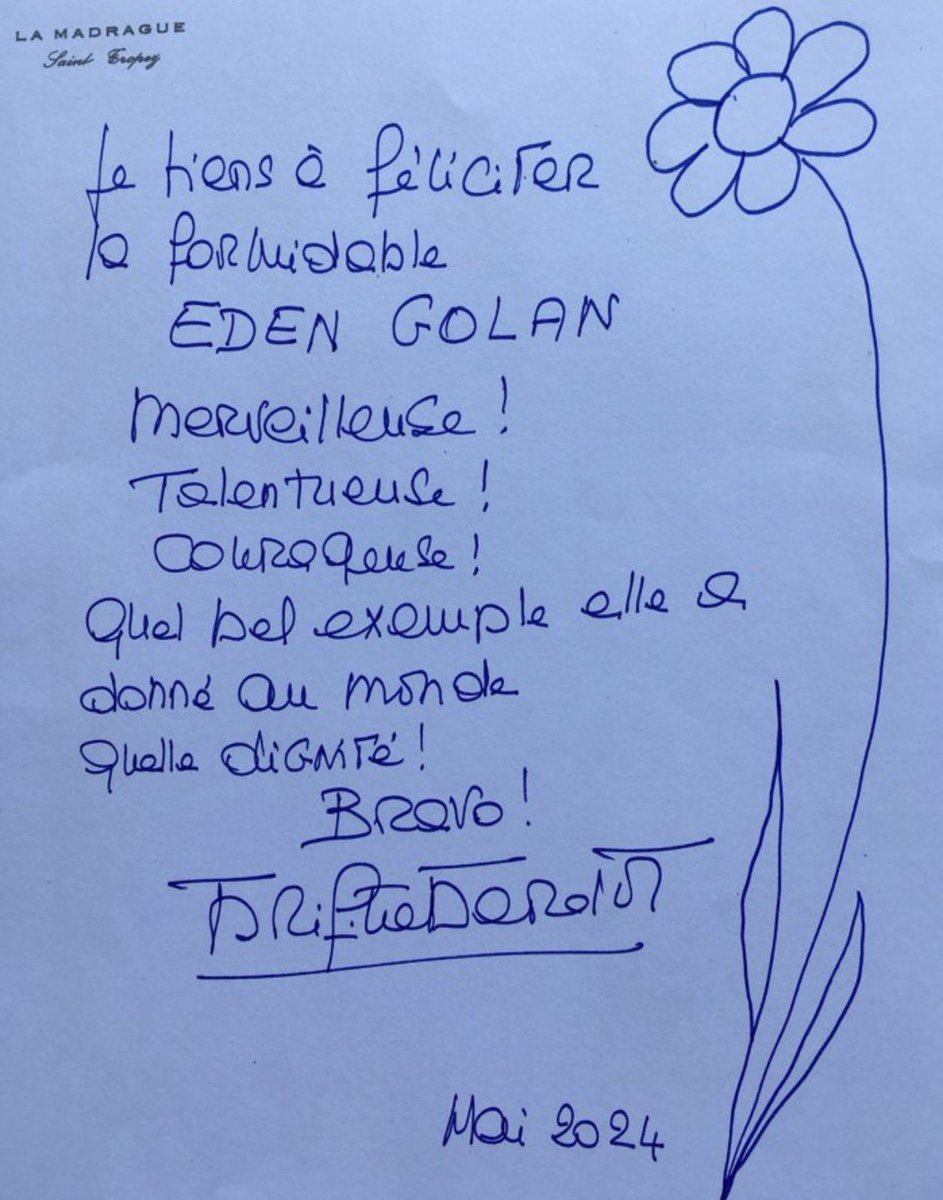 LA MADRAGUE
Saint Tropez
Je tiens à féliciter
la formidable
EDEN GOLAN
Merveilleuse !
Talentueuse !
Courageuse !
Quel bel exemple elle a
donné au monde
quelle dignité !
Bravo !
Brigitte Bardot
Mai 2024